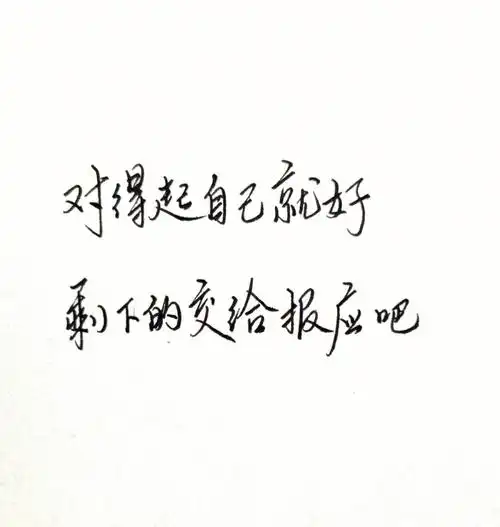 对得起自己就好
剩下的交给报应吧